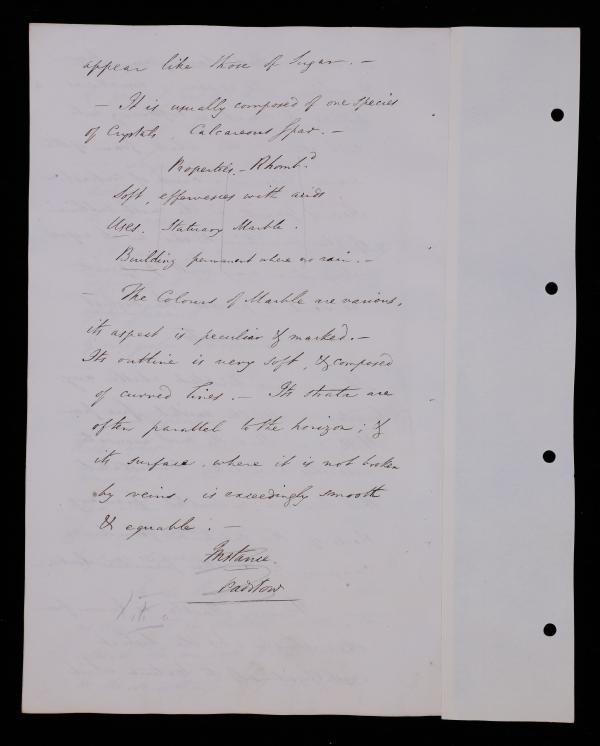 appear like those of Sugar. —
— It is usually composed of one species
of Crystals. Calcareous Spar. —
Properties. — Rhomb.d
Soft, effervesces with acids
Uses. Statuary Marble.
Building permanent where no rain. —
— The Colours of Marble are various,
its aspect is peculiar & marked. —
Its outline is very soft, & composed
of curved lines. — Its strata are
often parallel to the horizon; &
its surface, where it is not broken
by veins, is exceedingly smooth
& equable. —
Instance.
Padstow